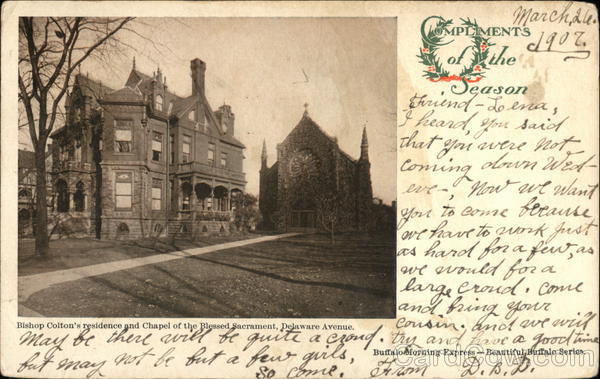 March, 26.
1907.
Compliments
of the
Season
Friend - Lena,
I heard, you said
that you were not
coming down Wed-
eve-, Now we want
you to come because
we have to work just
as hard for a few, as
we would for a
large croud. come
and bring your
cousin, and we will
try and have a good time
Bishop Colton's residence and Chapel of the Blessed Sacrament, Delaware Avenue.
Maybe there will be quite a croud.
but may not be but a few girls,
So come. From D.B.D
Buffalo Morning Express — Beautiful Buffalo Series.
CardCow.com